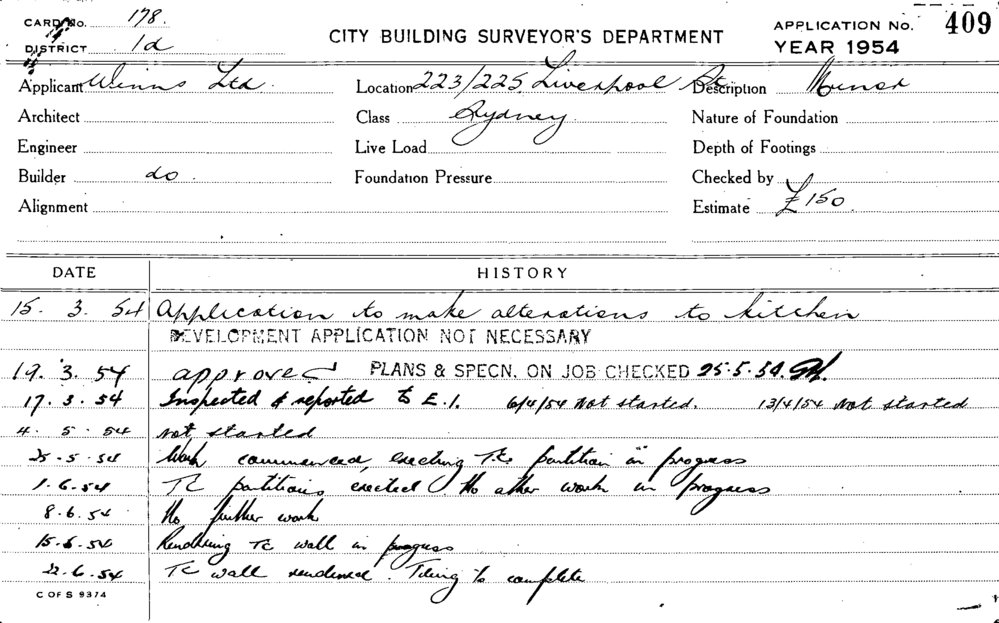 CARD No. 178.
DISTRICT 1d
CITY BUILDING SURVEYOR'S DEPARTMENT
APPLICATION No. 409
YEAR 1954
Applicant Winns Ltd. Location 223/225 Liverpool St. Description Minor
Architect Class Sydney Nature of Foundation
Engineer Live Load Depth of Footings
Builder do Foundation Pressure Checked by
Alignment Estimate £150.
DATE HISTORY
15. 3. 54 Application to make alterations to kitchen
DEVELOPMENT APPLICATION NOT NECESSARY
19. 3. 54 approved PLANS & SPECN. ON JOB CHECKED 25.5.54.
17. 3. 54 Inspected & reported to E.I. 6/4/54 Not started. 13/4/54 Not started
4. 5. 54 not started
25. 5. 54 Work commenced, erecting T.C. partition in progress
1. 6. 54 TC partitions erected No other work in progress
8. 6. 54 No further work
15. 6. 54 Rendering TC wall in progress
22. 6. 54 TC wall rendered. Tiling to complete
C OF S 9374